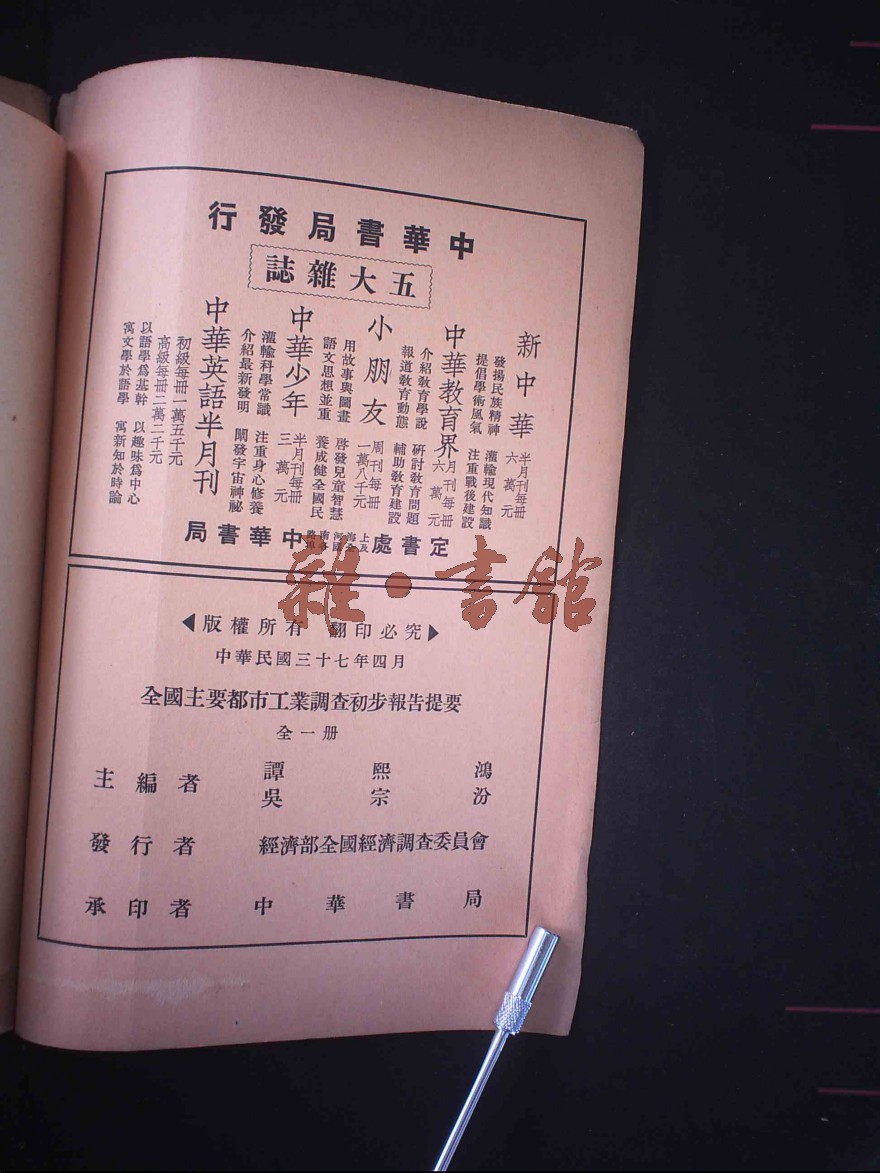 中華書局發行
五大雜誌
新中華
半月刊每冊
六萬元
發揚民族精神 灌輸現代知識
提倡學術風氣 注重戰後建設
中華教育界
月刊每冊
六萬元
介紹教育學說 研討教育問題
報道教育動態 輔助教育建設
小朋友
周刊每冊
一萬八千元
用故事與圖畫 啓發兒童智慧
語文思想並重 養成健全國民
中華少年
半月刊每冊
三萬元
灌輸科學常識 注重身心修養
介紹最新發明 闡發宇宙神祕
中華英語半月刊
初級每冊一萬五千元
高級每冊二萬二千元
以語學爲基幹 以趣味爲中心
寓文學於語學 寓新知於時論
定書處 上海河南路及全國各埠 中華書局
雜·書館
版權所有 翻印必究
中華民國三十七年四月
全國主要都市工業調查初步報告提要
全一册
主編者 譚熙鴻
吳宗汾
發行者 經濟部全國經濟調查委員會
承印者 中華書局